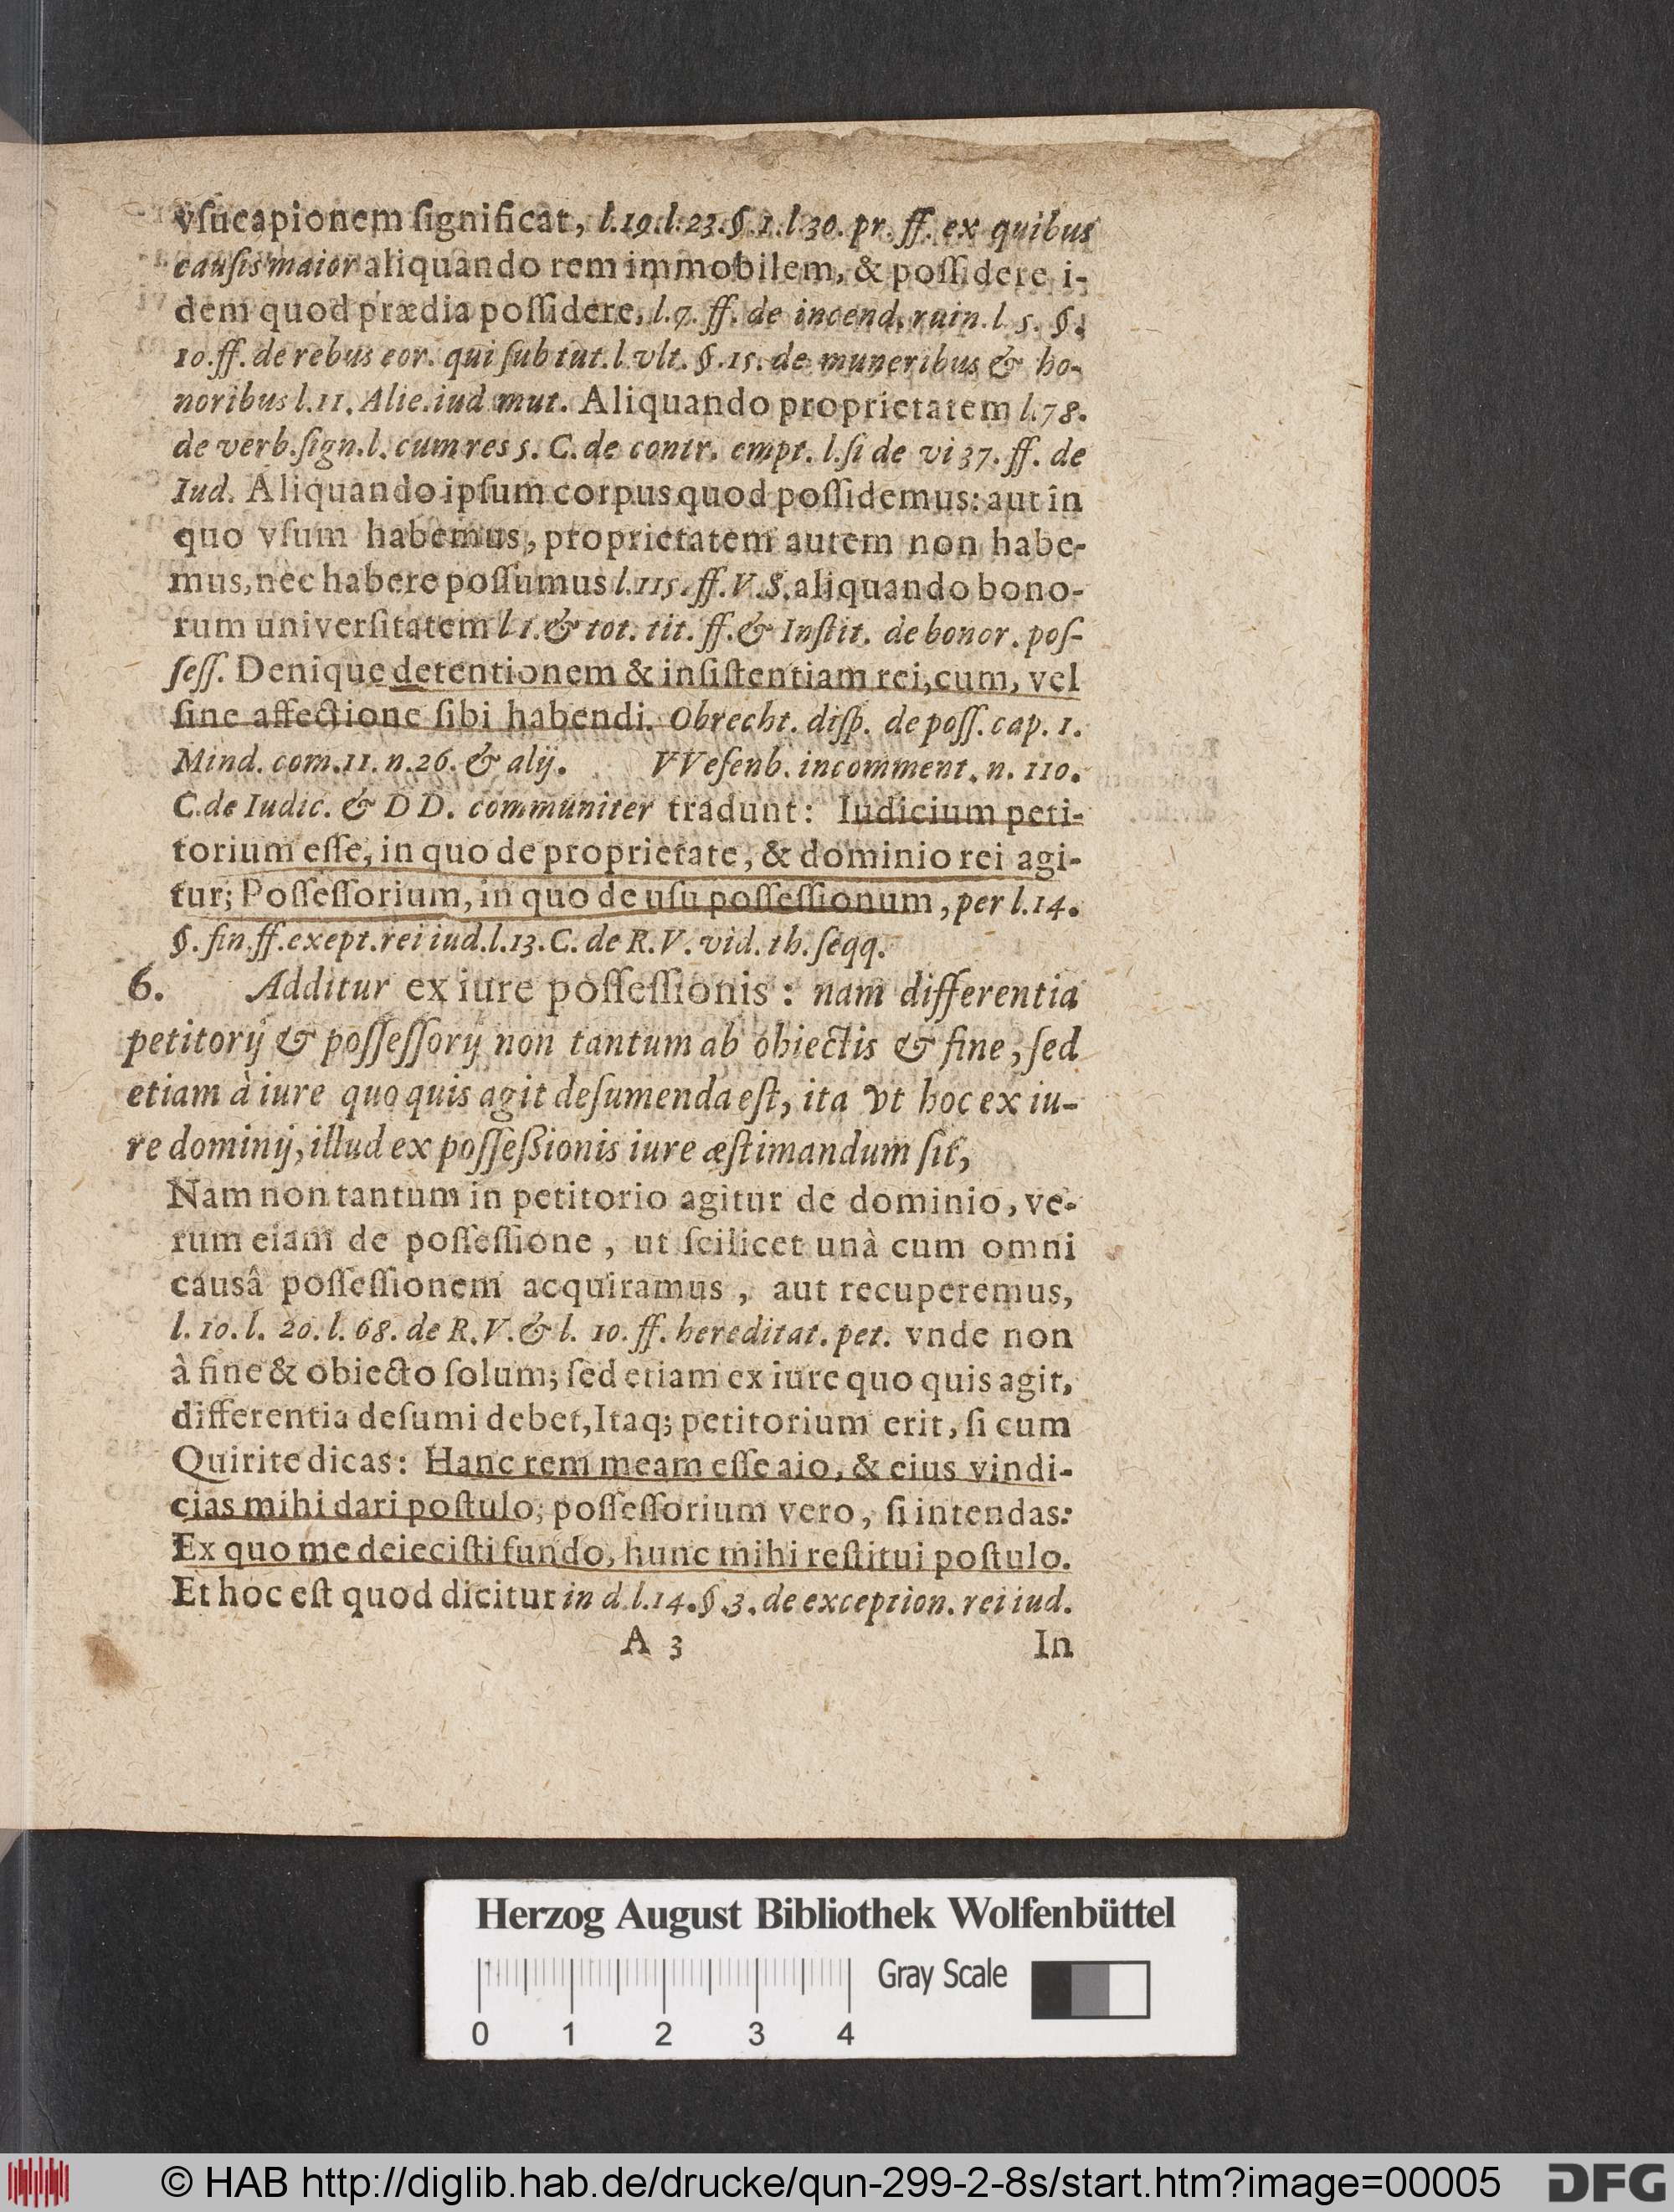 vſucapionem ſignificat, l.19.l.23.§.1.l 30. pr. ff. ex quibus
cauſis maior aliquando rem immobilem, & poſſidere i-
dem quod prædia poſſidere, l.9. ff. de incend. ruin. l. 5. §.
10.ff. de rebus eor. qui ſub tut. l. vlt. §.15. de muneribus & ho-
noribus l.11. Alie.iud mut. Aliquando proprietatem l.78.
de verb.ſign.l. cum res 5. C. de contr. empt. l.ſi de vi 37. ff. de
Iud. Aliquando ipſum corpus quod poſſidemus: aut in
quo vſum habemus, proprietatem autem non habe-
mus, nec habere poſſumus l.115. ff. V.S. aliquando bono-
rum univerſitatem l 1. & tot. tit. ff. & Inſtit. de bonor. poſ-
ſeſſ. Denique detentionem & inſiſtentiam rei, cum, vel
ſine affectione ſibi habendi. Obrecht. diſp. de poſſ. cap. 1.
Mind. com.11. n.26. & alij. VVeſenb. incomment. n. 110.
C. de Iudic. & DD. communiter tradunt: Iudicium peti-
torium eſſe, in quo de proprietate, & dominio rei agi-
tur; Poſſeſſorium, in quo de uſu poſſeſſionum, per l.14.
§. fin. ff. exept. rei iud. l.13. C. de R.V. vid. th. ſeqq.
6. Additur ex iure poſſeſſionis: nam differentia
petitorij & poſſeſſorij non tantum ab obiectis & fine, ſed
etiam à iure quo quis agit deſumenda eſt, ita vt hoc ex iu-
re dominij, illud ex poſſeßionis iure æſtimandum ſit,
Nam non tantum in petitorio agitur de dominio, ve-
rum eiam de poſſeſſione, ut ſcilicet unà cum omni
causâ poſſeſſionem acquiramus, aut recuperemus,
l. 10. l. 20. l. 68. de R.V. & l. 10. ff. hereditat. pet. vnde non
â fine & obiecto ſolum; ſed etiam ex iure quo quis agit,
differentia deſumi debet, Itaq; petitorium erit, ſi cum
Quirite dicas: Hanc rem meam eſſe aio, & eius vindi-
cias mihi dari poſtulo; poſſeſſorium vero, ſi intendas:
Ex quo me deieciſti fundo, hunc mihi reſtitui poſtulo.
Et hoc eſt quod dicitur in d. l.14. §.3. de exception. rei iud.
A 3 In
Herzog August Bibliothek Wolfenbüttel
Gray Scale
0 1 2 3 4
© HAB http://diglib.hab.de/drucke/qun-299-2-8s/start.htm?image=00005
DFG